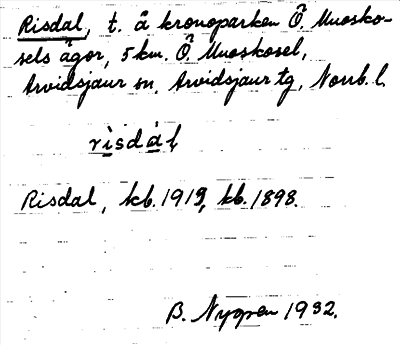 Risdal, t. å kronoparken Ö. Muosko-
sels ägor, 5 km. Ö. Muoskosel,
Arvidsjaur sn, Arvidsjaur tg, Norrb. l.
rìsdáḷ
Risdal, kb. 1919, kb. 1898.
B. Nygren 1932.